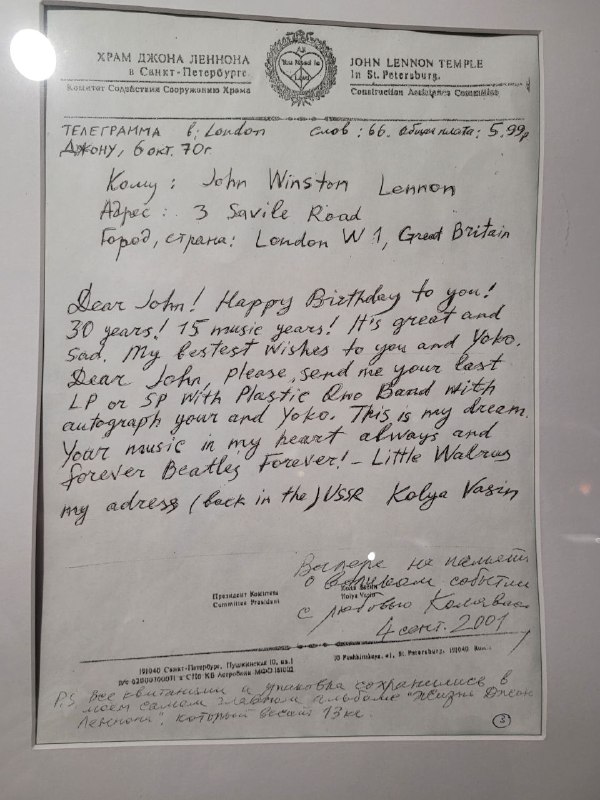 ХРАМ ДЖОНА ЛЕННОНА
в Санкт-Петербурге.
Комитет Содействия Сооружению Храма
All
You Need Is
Love
JOHN LENNON TEMPLE
In St. Petersburg.
Construction Assistance Committee
ТЕЛЕГРАММА в. London слов: 66. общая плата: 5.99р
Джону, 6 окт. 70г.
Кому: John Winston Lennon
Адрес: 3 Savile Road
Город, страна: London W1, Great Britain
Dear John! Happy Birthday to you!
30 years! 15 music years! It is great and
sad. My bestest wishes to you and Yoko.
Dear John, please, send me your last
LP or SP with Plastic Ono Band with
autograph your and Yoko. This is my dream.
Your music in my heart always and
forever Beatles Forever! – Little Walrus
my adress (back in the) USSR Kolya Vasin
на память
о великом событии
с любовью Коля Васин
4 сент. 2001
Президент Комитета
Committee President
Коля Васин
Kolya Vasin
191040 Санкт-Петербург, Пушкинская 10, кв.1
10 Pushkinskaya, #1, St. Petersburg, 191040
P.S Все квитанции и упаковка сохранились в
моём самом главном альбоме "Жизнь Джона
Леннона", который весит 13 кг.
3